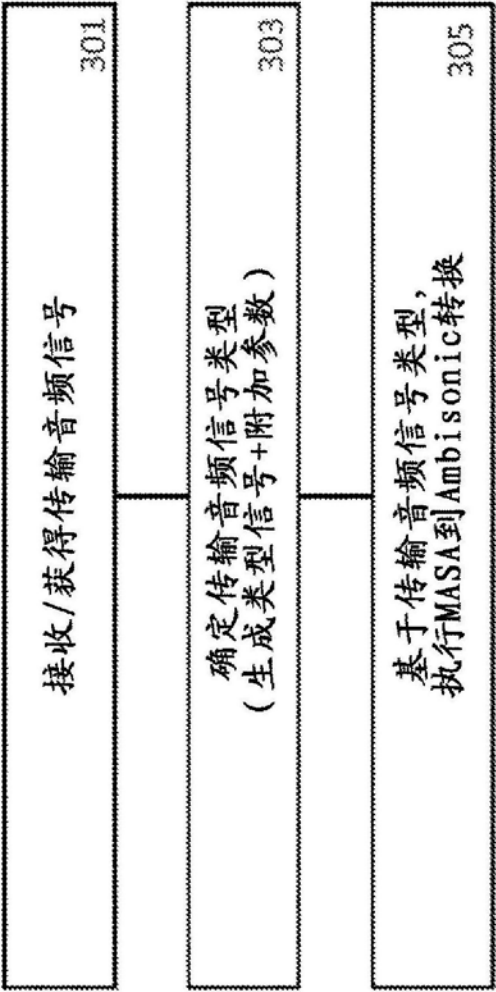 接收/获得传输音频信号
301
确定传输音频信号类型
(生成类型信号+附加参数)
303
基于传输音频信号类型,
执行MASA到Ambisonic转换
305